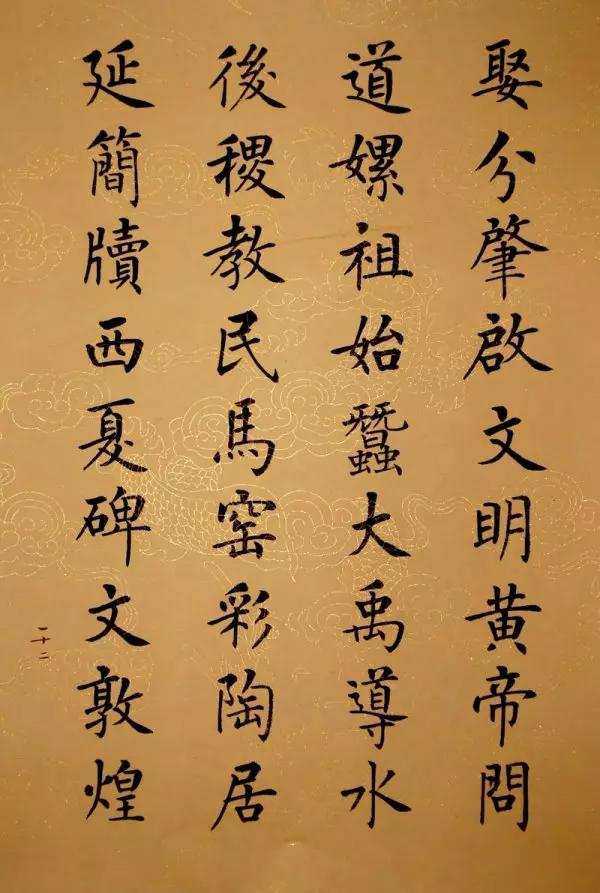 娶分肇啟文明黄帝問
道嫘祖始蠶大禹導水
後稷教民馬窑彩陶居
延簡牘西夏碑文敦煌
一十二